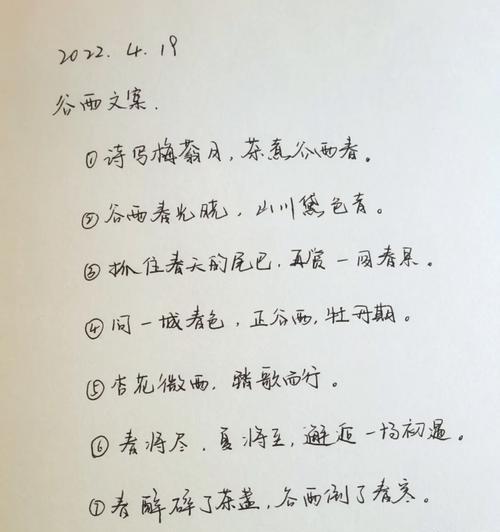 2022.4.19
谷雨文案.
①诗写梅月，茶煮谷雨春。
②谷雨春光晓，山川黛色青。
③抓住春天的尾巴，再赏一回春景。
④问一城春色，正谷雨，牡丹期。
⑤杏花微雨，踏歌而行。
⑥春将尽，夏将至，邂逅一场初遇。
⑦春醉碎了茶盏，谷雨倒了春寒。